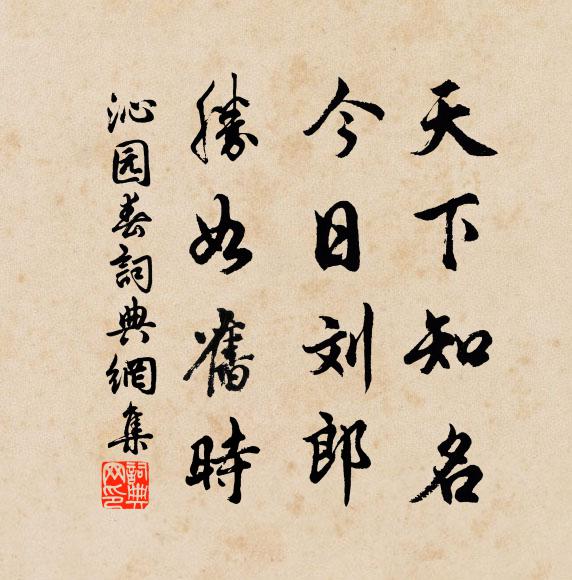 天下知名
今日刘郎
勝如舊時
沁园春詞典網集
詞典网印